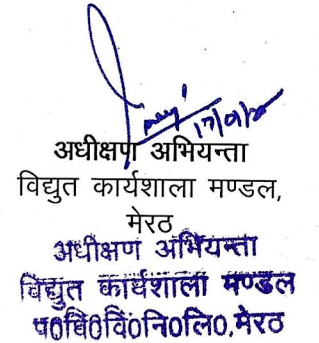 17/01/20
अधीक्षण अभियन्ता
विद्युत कार्यशाला मण्डल,
मेरठ
अधीक्षण अभियन्ता
विद्युत कार्यशाला मण्डल
प०वि०वि०नि०लि०,मेरठ